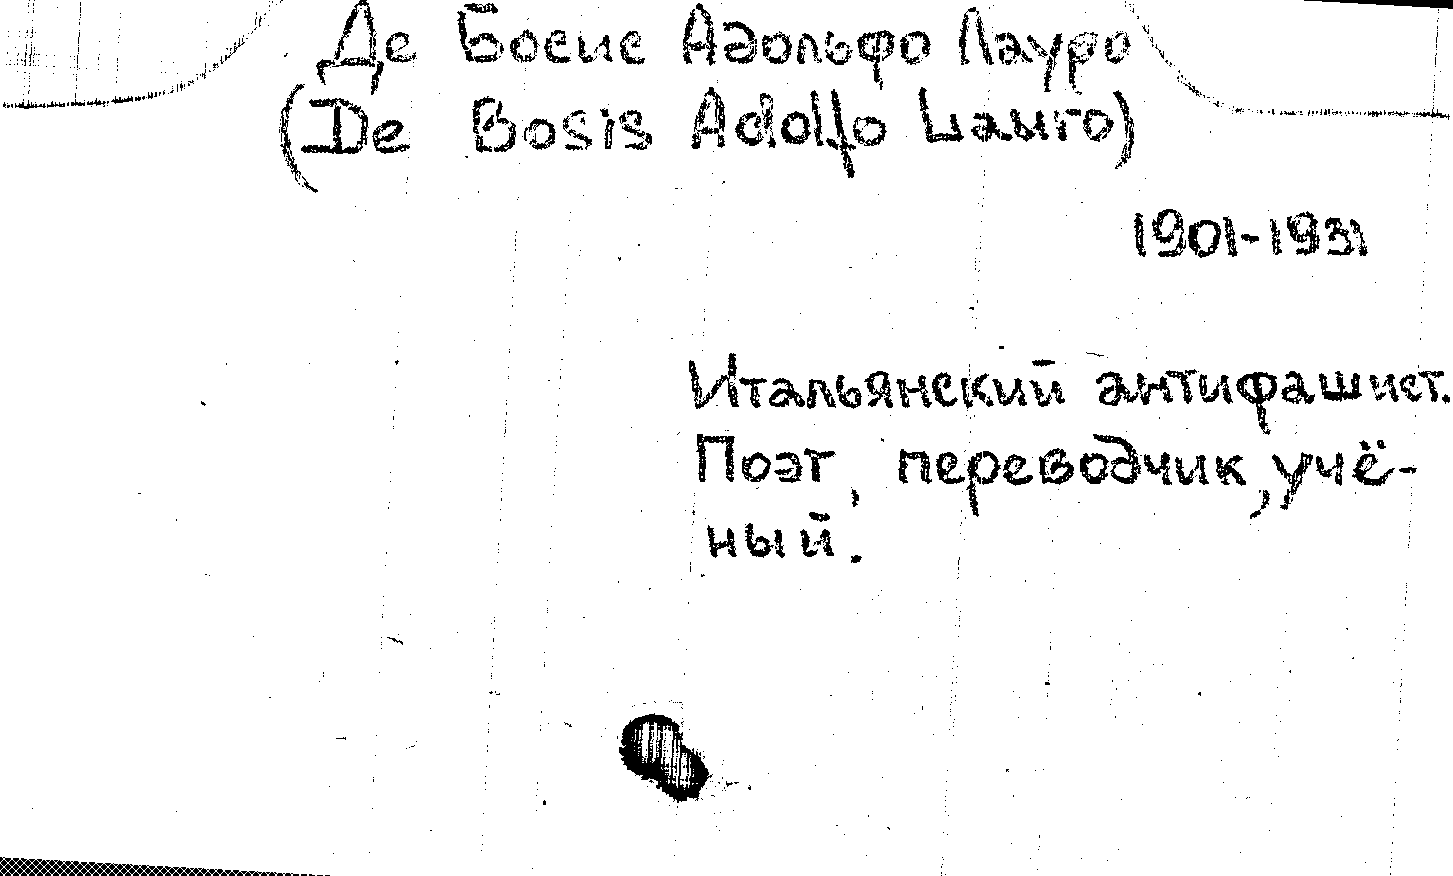 Де Босис Адольфо Лауро
(De Bosis Adolfo Lauro)
1901-1931
Итальянский антифашист.
Поэт, переводчик, учё-
ный.